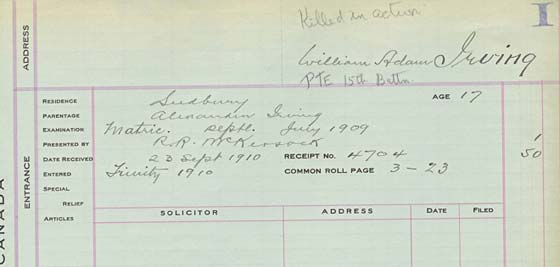 Killed in action
I
ADDRESS
William Adam Irving
PTE 15th Battn.
RESIDENCE Sudbury AGE 17
PARENTAGE Alexander Irving
EXAMINATION Matric. Septl. July 1909
PRESENTED BY R.R. McKessock 1
DATE RECEIVED 23 Sept 1910 RECEIPT NO. 4704 50
ENTERED Trinity 1910 COMMON ROLL PAGE 3-23
SPECIAL
RELIEF
ARTICLES
ENTRANCE
SOLICITOR ADDRESS DATE FILED
CANADA